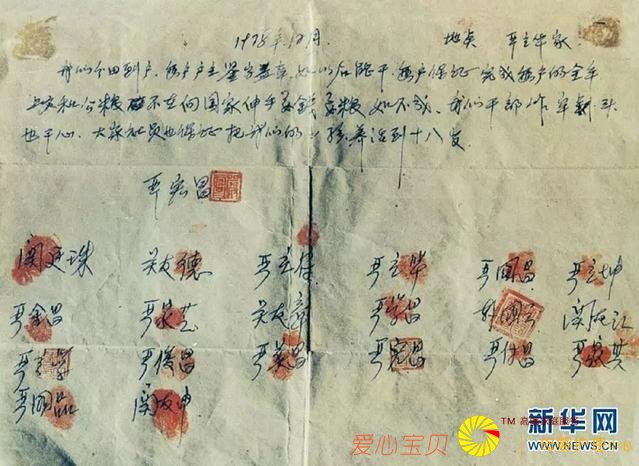 1978年12月. 地点 严立华家
我们分田到户,每户户主签字盖章,如以后能干,每户保证完成每户的全年
上交和公粮 不在向国家伸手要钱要粮 如不成,我们干部作牢刹头
也干心,大家社员也保证把我们的小孩养活到十八岁.
严宏昌
关廷珠 关友德 严立符 严立华 严国昌 严立坤
严金昌 严家芝 关友章 严学昌 韩国云 关友江
严立学 严俊昌 严美昌 严宏昌 严付昌 严家其
严国品 关友申
爱心宝贝 TM
新华网
WWW.NEWS.CN